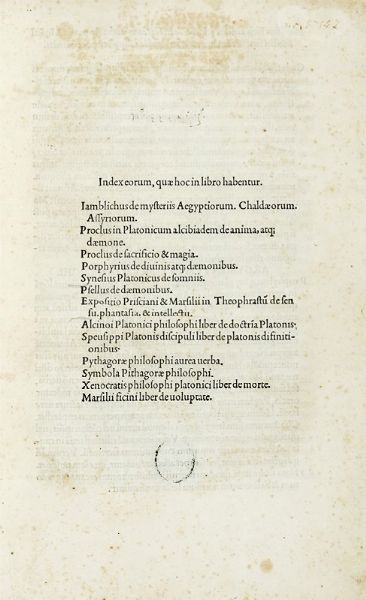 Index eorum, quæ hoc in libro habentur.
Iamblichus de mysteriis Aegyptiorum. Chaldæorum.
Assyriorum.
Proclus in Platonicum alcibiadem de anima, atq;
dæmone.
Proclus de sacrificio & magia.
Porphyrius de diuinis atq; dæmonibus.
Synesius Platonicus de somniis.
Psellus de dæmonibus.
Expositio Prisciani & Marsilii in Theophrastū de sen
su, phantasia, & intellectu.
Alcinoi Platonici philosophi liber de doctrīa Platonis.
Speusippi Platonis discipuli liber de platonis difiniti-
onibus.
Pythagoræ philosophi aurea uerba.
Symbola Pithagoræ philosophi.
Xenocratis philosophi platonici liber de morte.
Marsilii ficini liber de uoluptate.